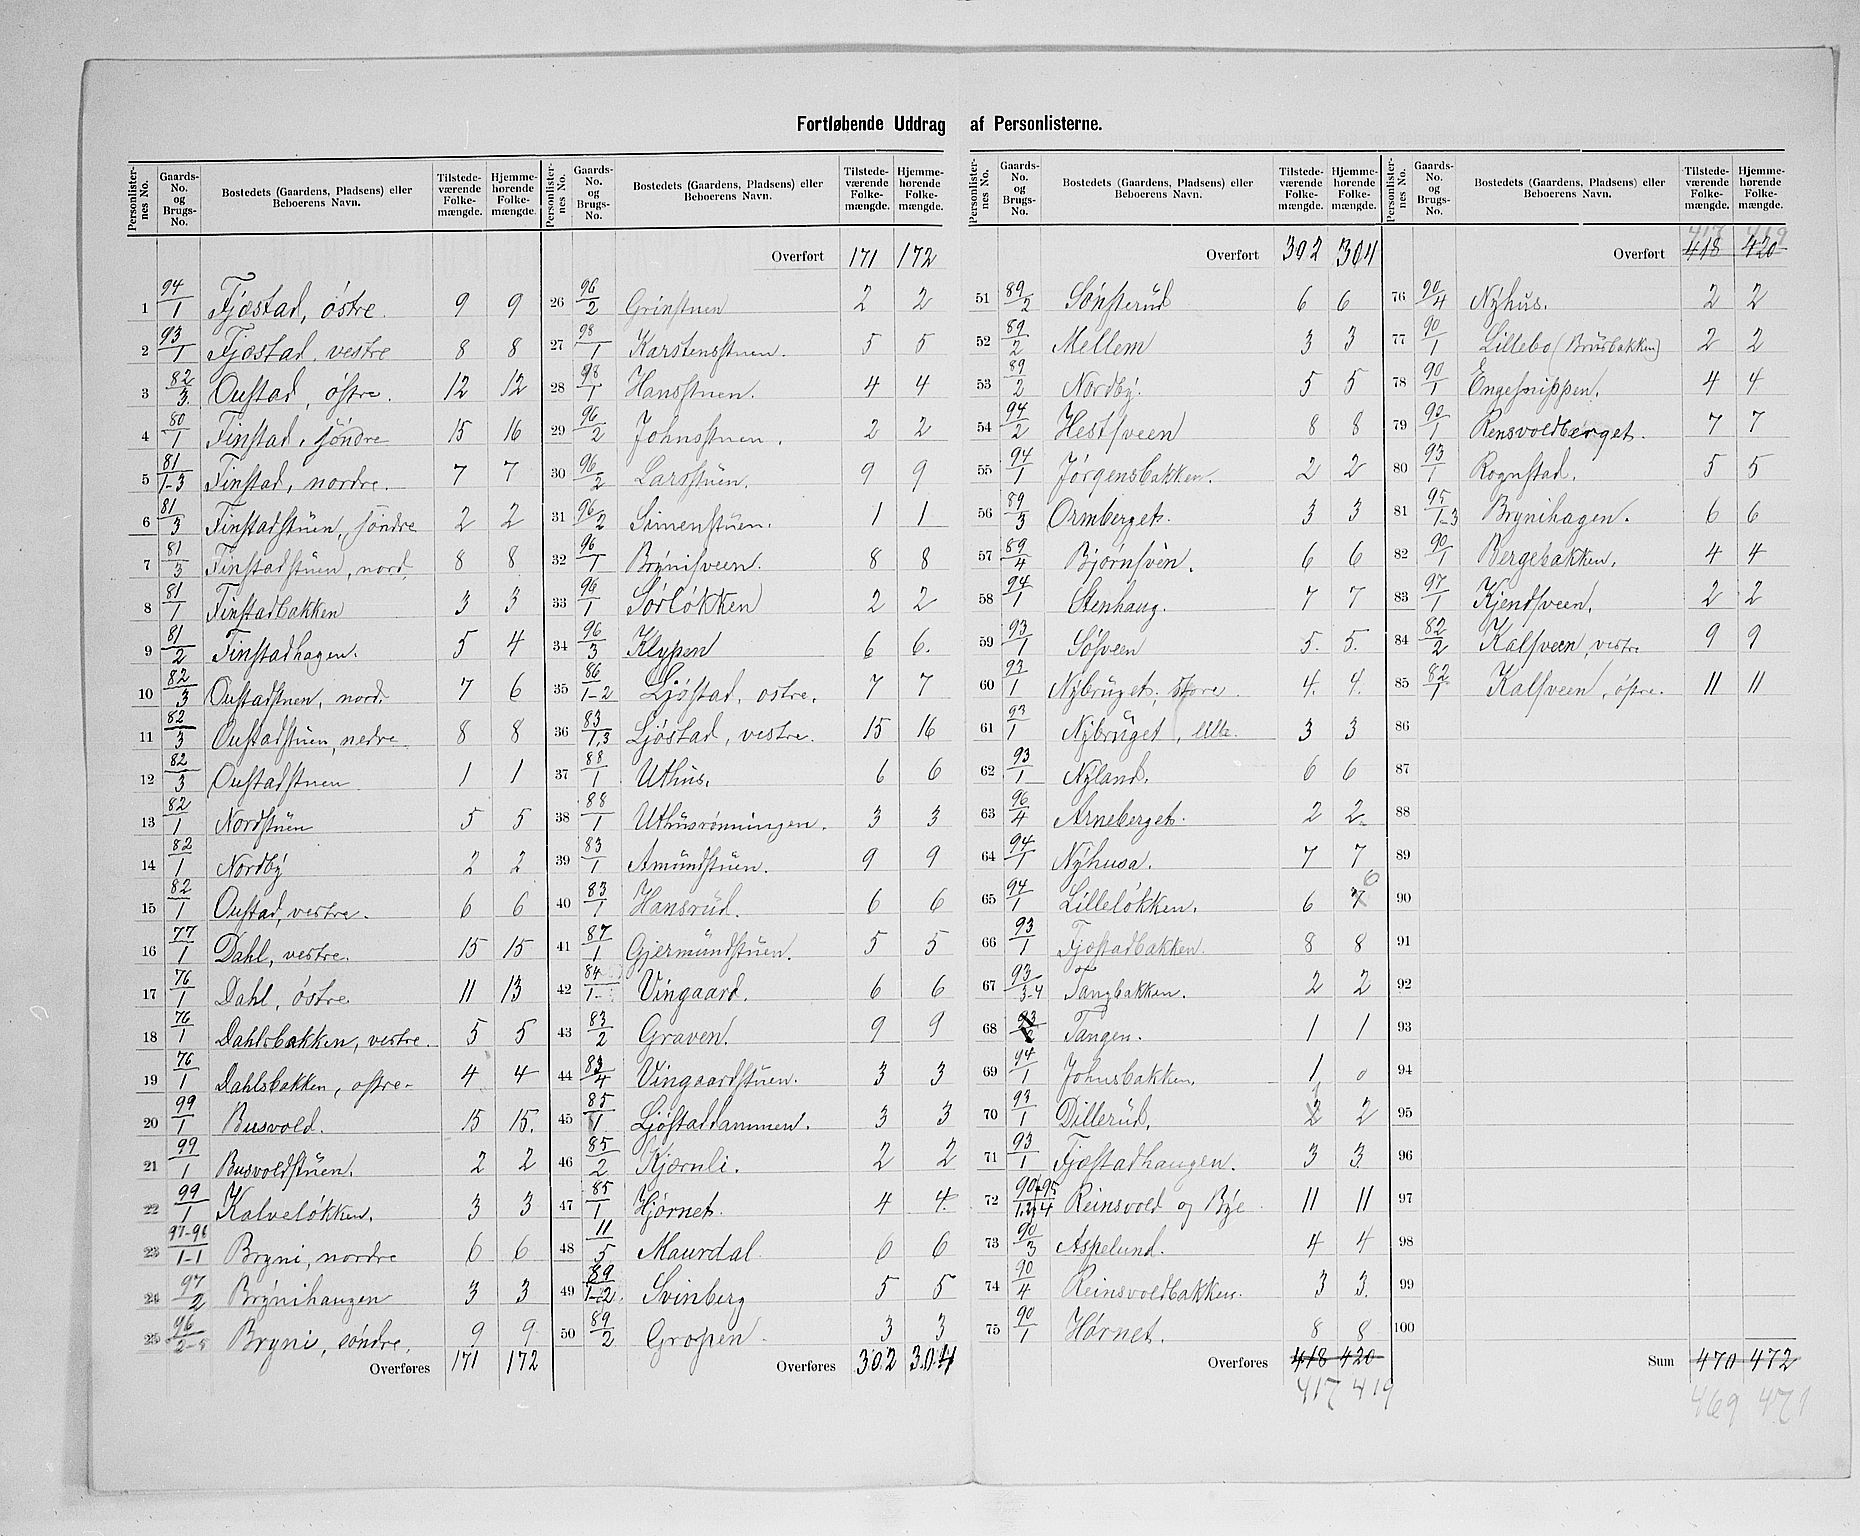 Fortløbende Uddrag af Personlisterne.
Personlisternes No. Gaards-No. og Brugs-No. Bostedets (Gaardens, Pladsens) eller Beboerens Navn. Tilstedeværende Folkemængde. Hjemmehørende Folkemængde.
1 94/1 Fjæstad, østre 9 9
2 93/1 Fjæstad, vestre 8 8
3 82/3 Oustad, østre. 12 12
4 80/1 Finstad, søndre 15 16
5 81/1-3 Finstad, nordre. 7 7
6 81/3 Finstadstuen, søndre 2 2
7 81/3 Finstadstuen, nord. 8 8
8 81/1 Finstadbakken 3 3
9 81/2 Finstadhagen. 5 4
10 82/3 Oustadstuen, nord. 7 6
11 82/3 Oustadstuen, nedre 8 8
12 82/3 Oustadstuen 1 1
13 82/1 Nordstuen 5 5
14 82/1 Nordby 2 2
15 82/1 Oustad, vestre. 6 6
16 77/1 Dahl, vestre. 15 15
17 76/1 Dahl, østre 11 13
18 76/1 Dahlsbakken, vestre. 5 5
19 76/1 Dahlsbakken, østre. 4 4
20 99/1 Busvold. 15 15.
21 99/1 Busvoldstuen. 2 2
22 99/1 Kalveløkken. 3 3
23 97-96/1-1 Bryni, nordre 6 6
24 97/2 Brynihaugen 3 3
25 96/2-5 Bryni, søndre. 9 9
Overføres 171 172
Personlisternes No. Gaards-No. og Brugs-No. Bostedets (Gaardens, Pladsens) eller Beboerens Navn. Tilstedeværende Folkemængde. Hjemmehørende Folkemængde.
Overført 171 172
26 96/2 Grinstuen 2 2
27 98/1 Karstensstuen. 5 5
28 98/1 Hansstuen. 4 4
29 96/2 Johnsstuen. 2 2
30 96/2 Larsstuen. 9 9
31 96/2 Simenstuen. 1 1
32 96/1 Brynisveen. 8 8
33 96/1 Sørløkken 2 2
34 96/3 Klypen 6 6.
35 86/1-2 Ljøstad, østre. 7 7
36 83/1,3 Ljøstad, vestre. 15 16
37 88/1 Uthus. 6 6
38 88/1 Uthusrønningen. 3 3
39 83/1 Amundstuen. 9 9
40 83/1 Hansrud. 6 6
41 87/1 Gjermundstuen. 5 5
42 84/1- Vingaard. 6 6
43 83/2 Graven. 9 9
44 83/4 Vingaardstuen. 3 3
45 85/1 Ljøstaddammen. 3 3
46 85/2 Kjærnli. 2 2
47 85/1 Hjørnet. 4 4.
48 11/5 Maurdal 6 6
49 89/1-2. Svinberg 5 5
50 89/2 Gropen. 3 3
Overføres 302 304
Personlisternes No. Gaards-No. og Brugs-No. Bostedets (Gaardens, Pladsens) eller Beboerens Navn. Tilstedeværende Folkemængde. Hjemmehørende Folkemængde.
Overført 302 304
51 89/2 Sønsterud 6 6
52 89/2 Mellem 3 3
53 89/2 Nordby. 5 5
54 94/2 Hestsveen 8 8
55 94/1 Jørgensbakken. 2 2
56 89/3 Ormberget. 3 3
57 89/4 Bjørnsvèn. 6 6
58 94/1 Stenhaug. 7 7
59 93/1 Søsveen 5. 5.
60 93/1 Nybruget, store. 4. 4.
61 93/1 Nybruget, lille. 3 3
62 93/1 Nyland. 6 6
63 96/4 Arneberget. 2 2.
64 94/1 Nyhusa. 7 7
65 94/1 Lilleløkken. 6 7 6
66 93/1 Fjæstadbakken. 8 8
67 93/3-4 Tangbakken. 2 2
68 93/2 Tangen. 1 1
69 94/1 Johnsbakken. 1 0
70 93/1 Dillerud. 2 1 2
71 93/1 Fjæstadhaugen. 3 3.
72 90+95/1.2.+4 Reinsvold og Bye 11 11
73 90/3 Aspelund. 4 4
74 90/4 Reinsvoldbakken. 3 3.
75 90/1 Hørnet. 8 8
Overføres 418 420
417 419
Personlisternes No. Gaards-No. og Brugs-No. Bostedets (Gaardens, Pladsens) eller Beboerens Navn. Tilstedeværende Folkemængde. Hjemmehørende Folkemængde.
417 419
Overført 418 420
76 90/4 Nyhus. 2 2
77 90/1 Lillebo (Brusbakken) 2 2
78 90/1 Engesnippen. 4 4
79 90/1 Rensvoldberget. 7 7
80 93/1 Rognstad. 5 5
81 95/1-3 Brynihagen. 6 6
82 90/1 Bergebakken. 4 4
83 97/1 Kjendsveen. 2 2
84 82/2 Kalsveen, vestre 9 9
85 82/1 Kalsveen, østre. 11 11
86
87
88
89
90
91
92
93
94
95
96
97
98
99
100
Sum 470 472
469 471